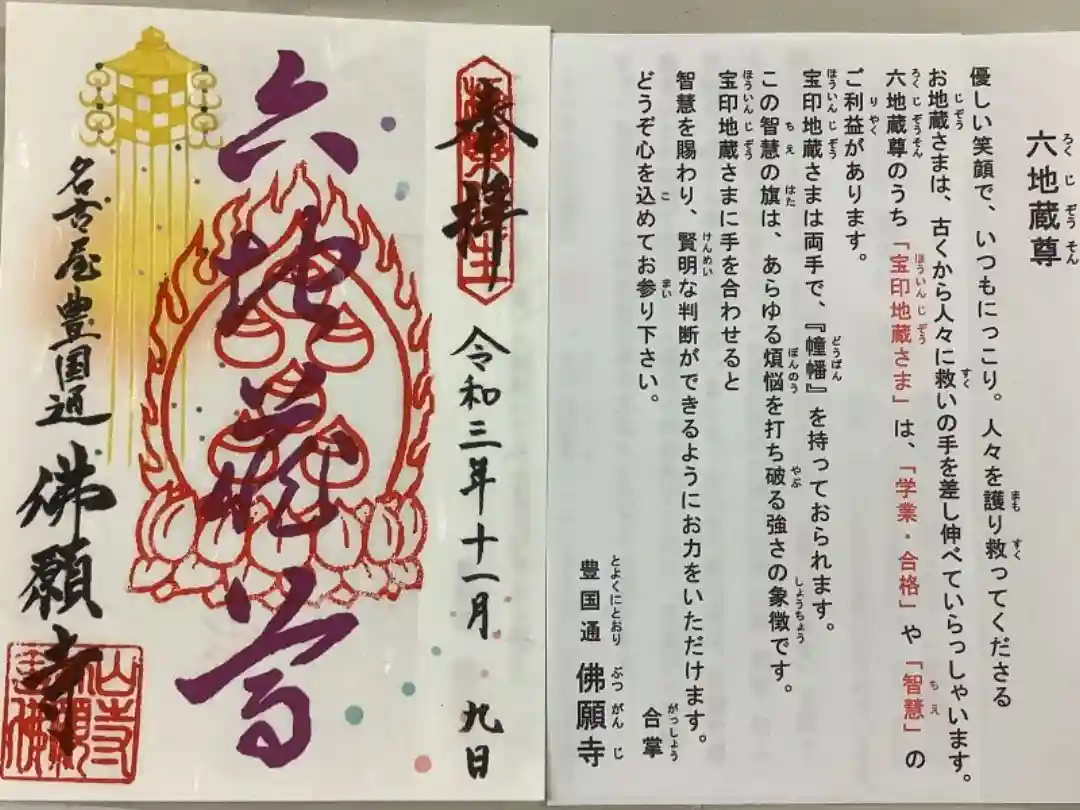 六地蔵尊
優しい笑顔で、いつもにっこり。人々を護り救ってくださる
お地蔵さまは、古くから人々に救いの手を差し伸べていらっしゃいます。
六地蔵尊のうち「宝印地蔵さま」は、「学業・合格」や「智慧」の
ご利益があります。
宝印地蔵さまは両手で、『幢幡』を持っておられます。
この智慧の旗は、あらゆる煩悩を打ち破る強さの象徴です。
宝印地蔵さまに手を合わせると
智慧を賜わり、賢明な判断ができるようにお力をいただけます。
どうぞ心を込めてお参り下さい。
合掌
豊国通 佛願寺
奉拝
令和三年十一月 九日
六地蔵尊
名古屋豊国通 佛願寺